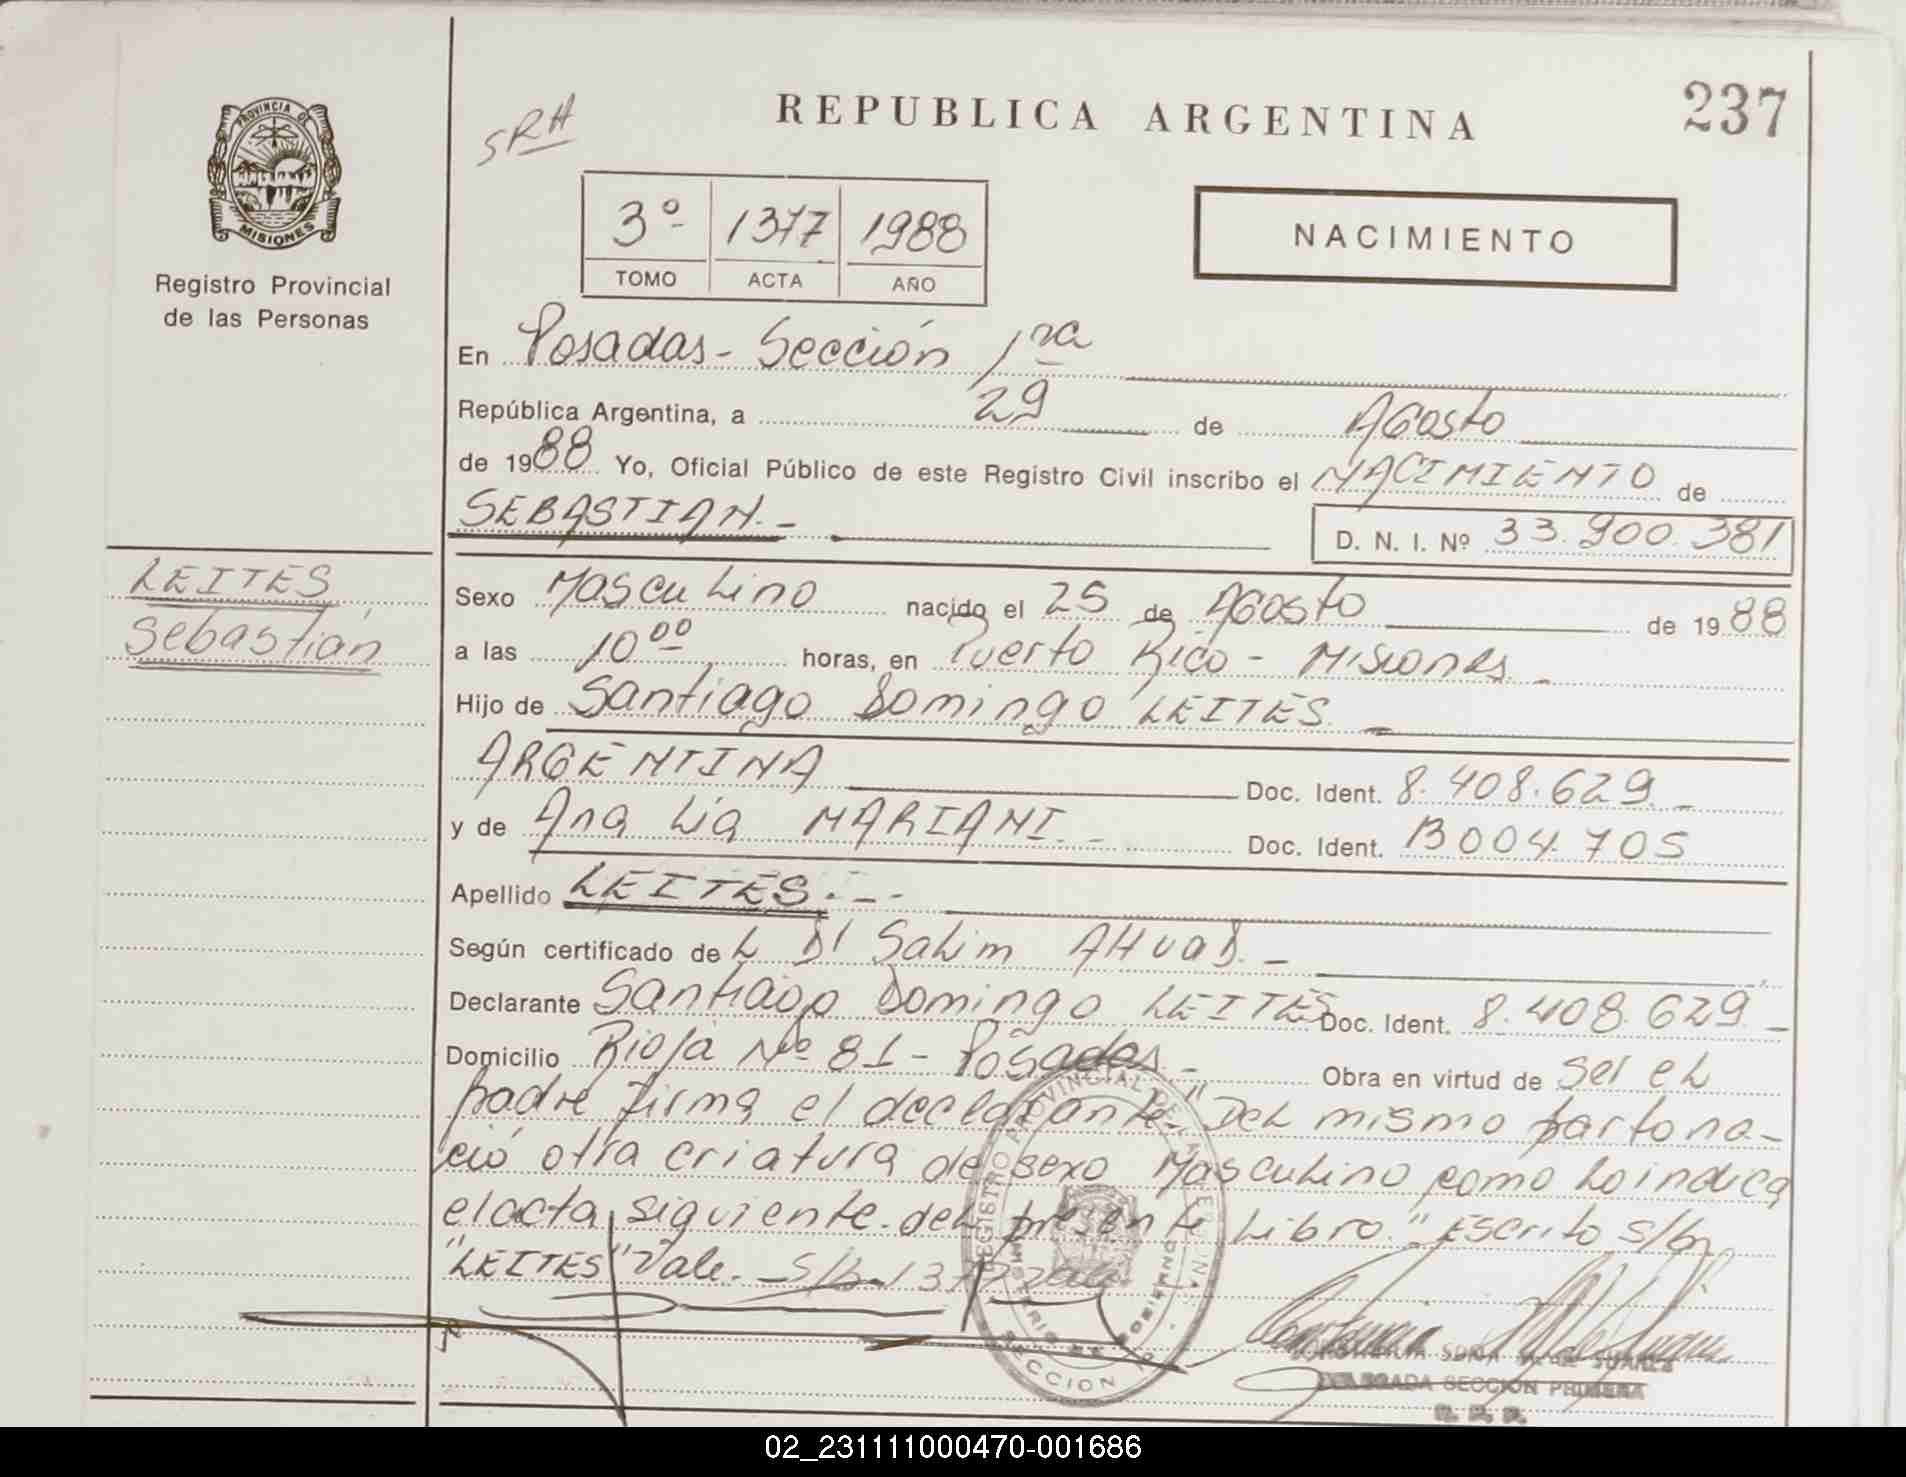 PROVINCIA DE
MISIONES
Registro Provincial
de las Personas
SRA
REPUBLICA ARGENTINA
237
3º 1377 1988
TOMO ACTA AÑO
NACIMIENTO
En Posadas - Sección 1ra
República Argentina, a 29 de Agosto
de 1988 Yo, Oficial Público de este Registro Civil inscribo el NACIMIENTO de
SEBASTIAN.-
D. N. I. Nº 33.900.381
LEITES
Sebastián
Sexo Masculino nacido el 25 de Agosto de 1988
a las 10 00 horas, en Puerto Rico - Misiones -
Hijo de Santiago Domingo LEITES -
ARGENTINA Doc. Ident. 8.408.629 -
y de Ana Lia MARIANI.- Doc. Ident. B004.705
Apellido LEITES.--
Según certificado de L D! Salim AHuaD. -
Declarante Santiago Domingo LEITES Doc. Ident. 8.408.629 -
Domicilio Rioja Nº 81 - Posadas - Obra en virtud de ser el
padre firma el declarante. "Del mismo parto na-
ció otra criatura de sexo Masculino como lo indica
el acta siguiente del presente Libro." Escrito s/b
"LEITES" Vale. S/B. 1377 Vale
REGISTRO PROVINCIAL DE LAS PERSONAS
MINISTERIO DE GOBIERNO
SECCION 1º
SONIA SUAREZ
DELEGADA SECCION PRIMERA
R. P. P.
02_231111000470-001686